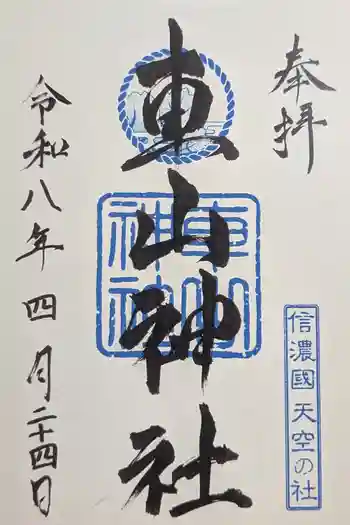 奉拝
信濃國 天空の社
車山神社
車山
神社
令和八年四月二十四日